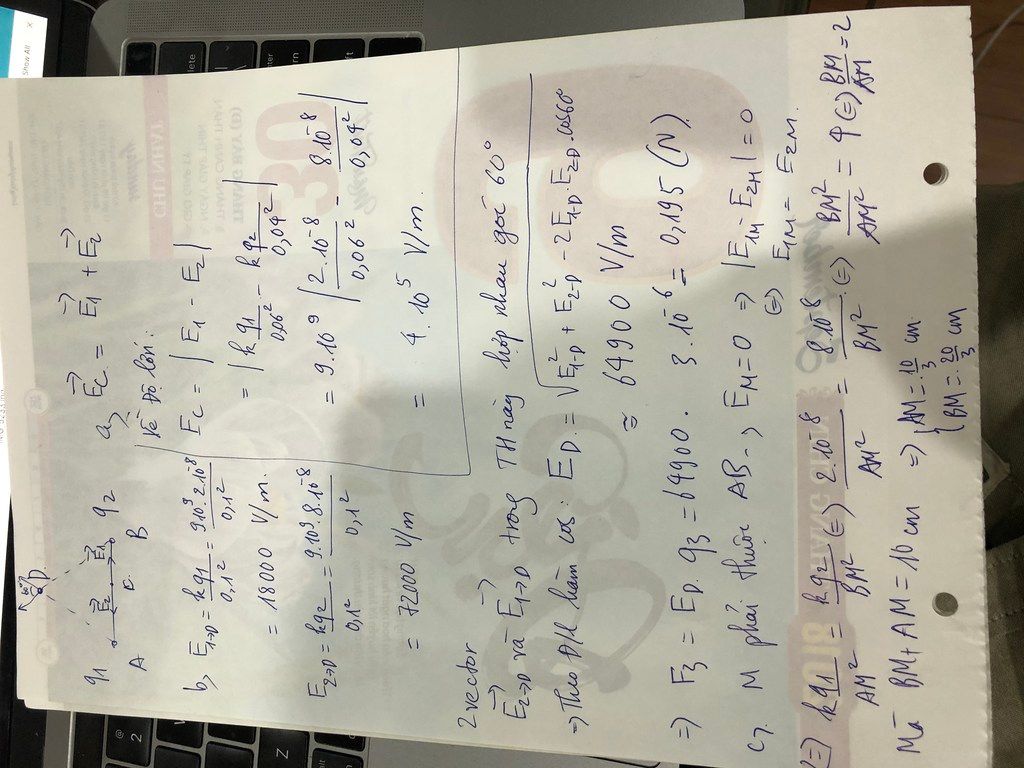 q1 q2
A C B
E2 E1
D
60°
a, →Ec = →E1 + →E2
Về độ lớn:
Ec = | E1 - E2 |
= | kq1/0,06² - kq2/0,04² |
= 9.10⁹ | 2.10⁻⁸/0,06² - 8.10⁻⁸/0,04² |
= 4.10⁵ V/m.
b, E1→D = kq1/0,1² = 9.10⁹.2.10⁻⁸/0,1²
= 18000 V/m.
E2→D = kq2/0,1² = 9.10⁹.8.10⁻⁸/0,1²
= 72000 V/m
2 vector
→E2→D và →E1→D trong TH này hợp nhau góc 60°
=> Theo Đ/l hàm cos: ED = √(E²1→D + E²2→D - 2E1→D.E2→D.cos60°)
≈ 64900 V/m
=> F3 = ED.q3 = 64900. 3.10⁻⁶ = 0,195 (N)
c, M phải thuộc AB -> EM = 0 => |E1M - E2M| = 0
(=) E1M = E2M
(=) kq1/AM² = kq2/BM² (=) 2.10⁻⁸/AM² = 8.10⁻⁸/BM² (=) BM²/AM² = 4 (=) BM/AM = 2
Mà BM + AM = 10 cm => { AM = 10/3 cm
BM = 20/3 cm
Show All
delete